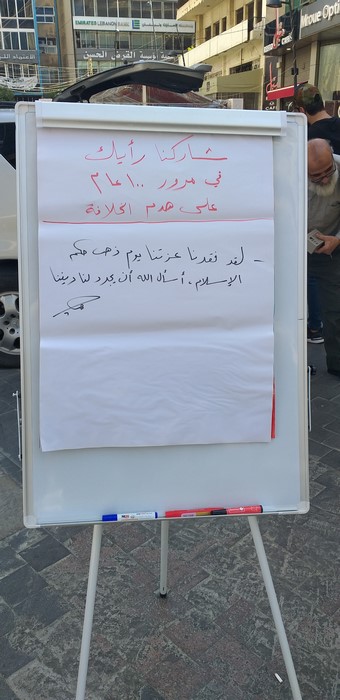 EMIRATES LEBANON BANK
Moue Optic
شاركنا رأيك
في مرور ١٠٠ عام
على هدم الخلافة
- لقد فقدنا عزتنا يوم ذهب حكم
الإسلام، أسأل الله أن يجدد لنا ديننا